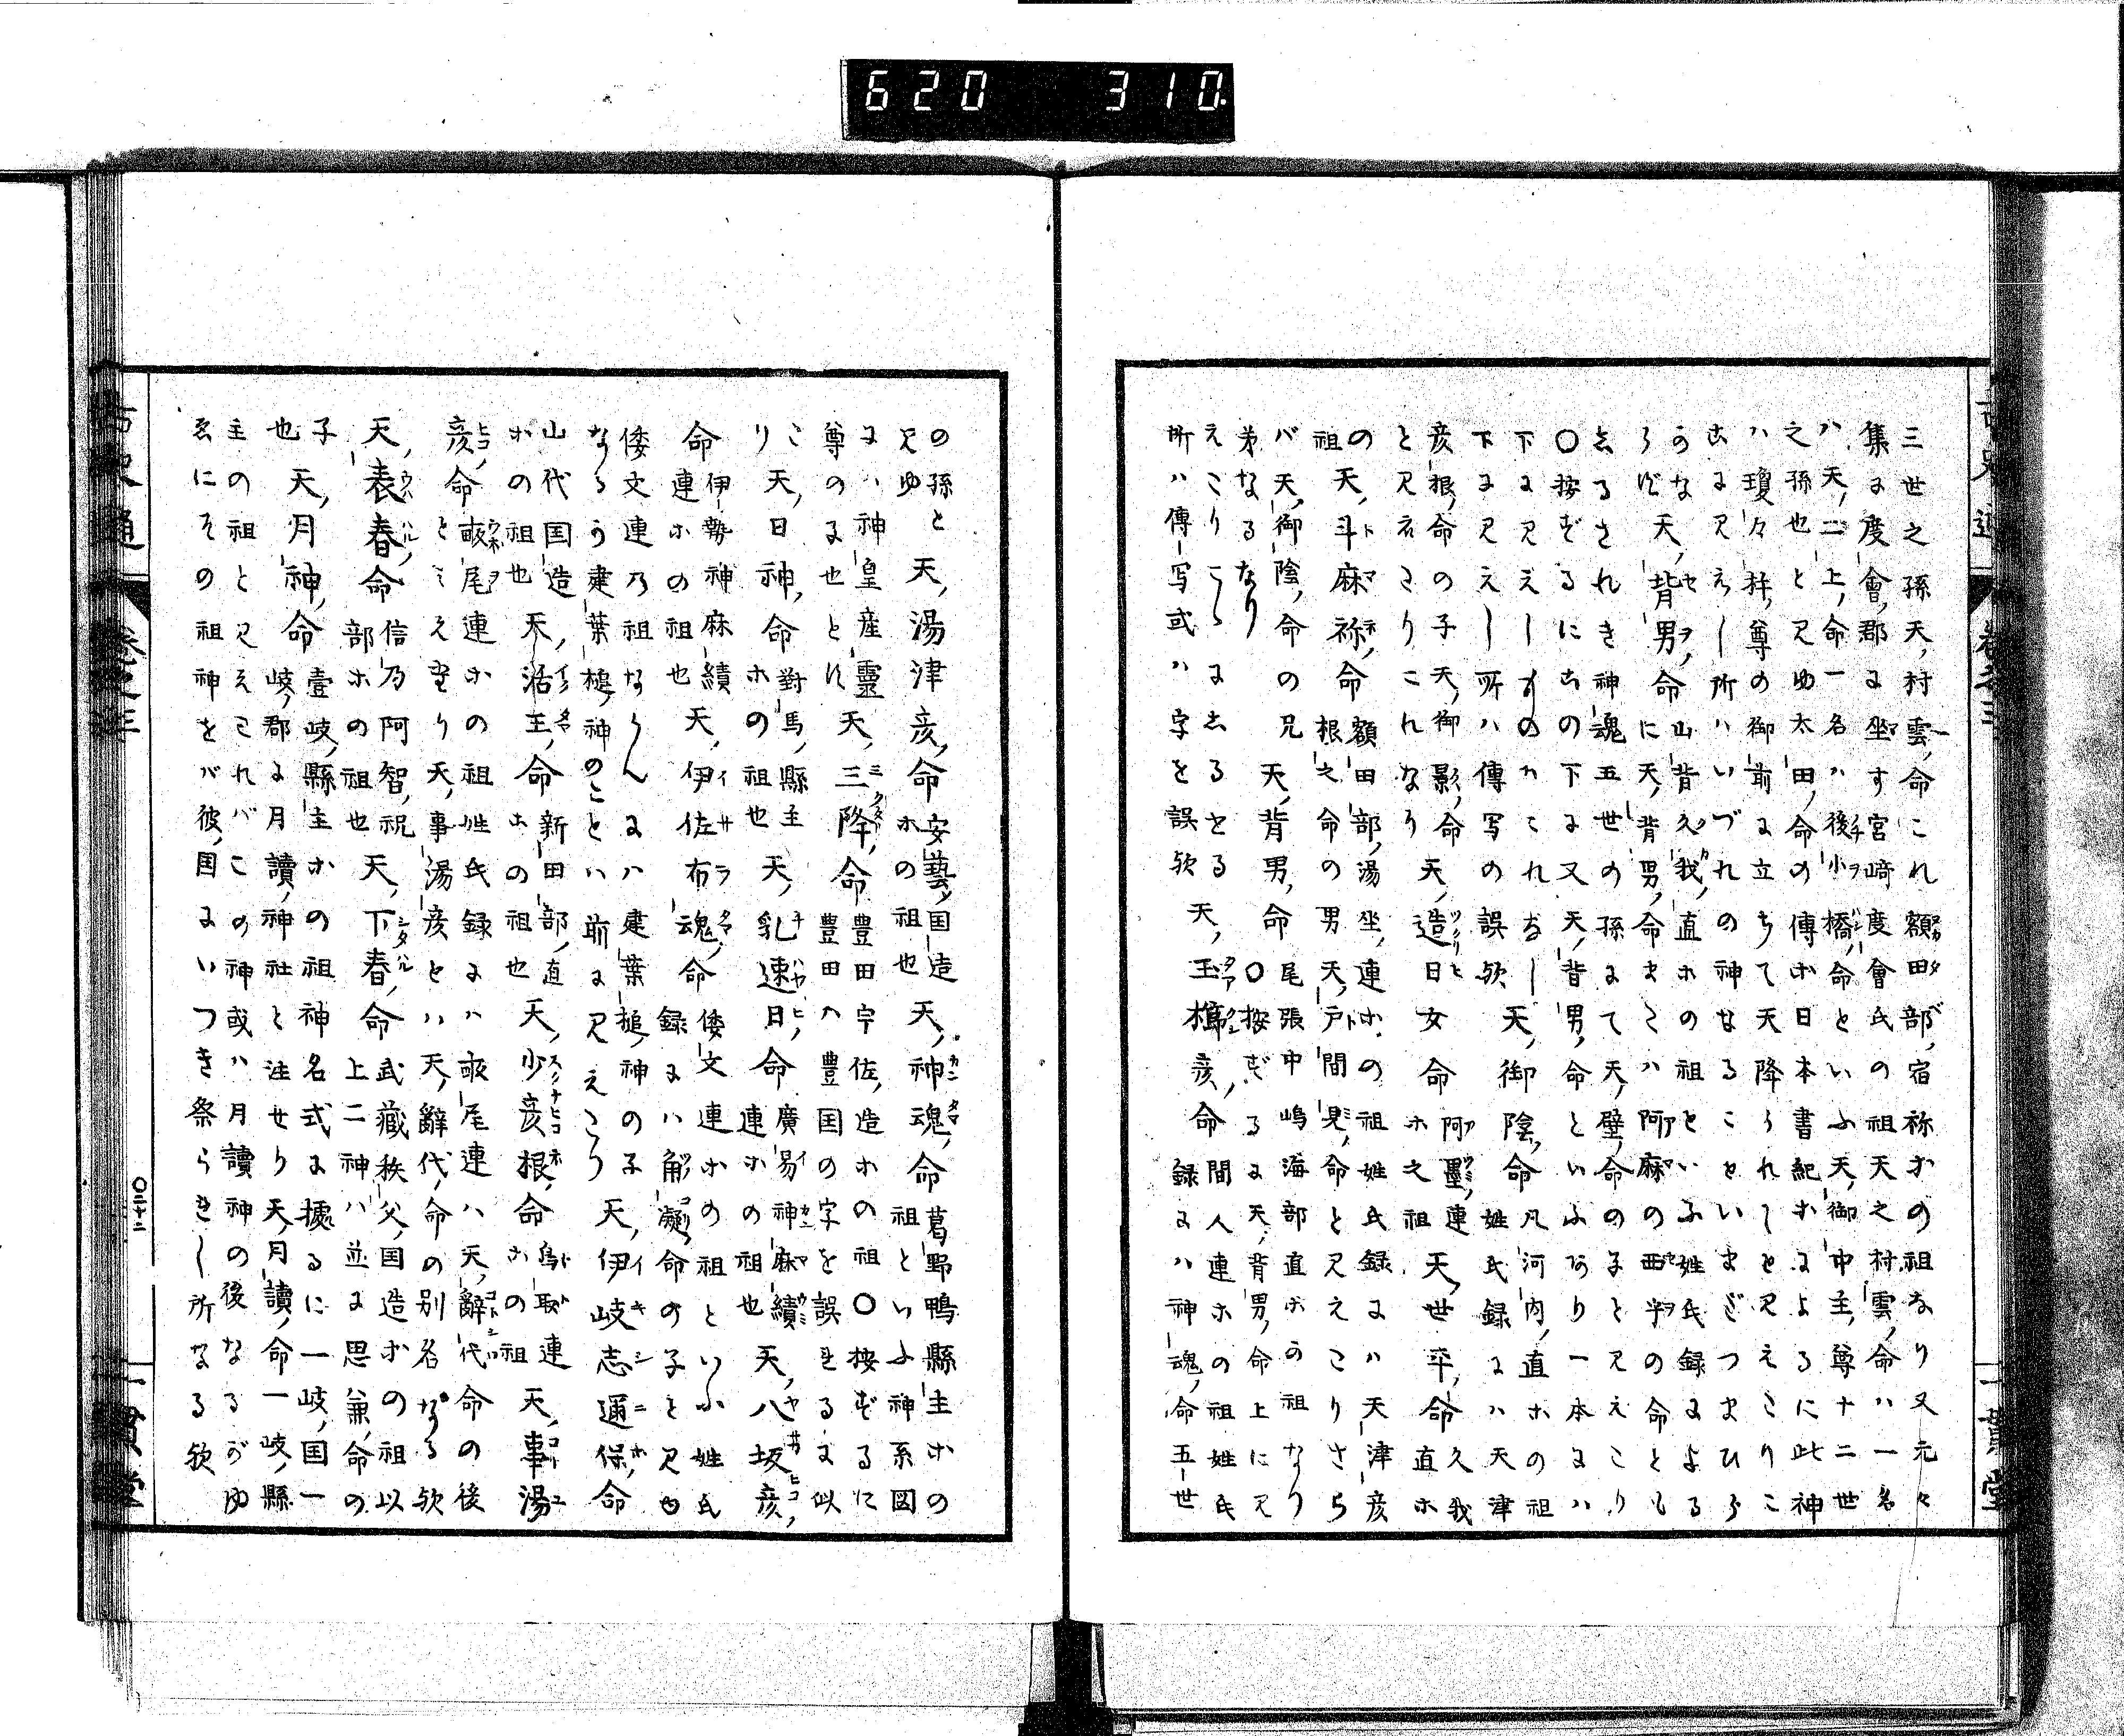 620 310.
三世之孫天村雲命これ額田部宿祢ホの祖なり又元々
集に度會郡に坐す宮﨑度會氏の祖天之村雲命ハ一名
ハ天二上命一名ハ後小橋命といふ天御中主尊十二世
之孫也と見ゆ太田命の傳ホ日本書紀ホによるに此神
ハ瓊々杵尊の御前に立ちて天降られしと見えたりこ
こに見えし所ハいづれの神なることをいまだつまひら
うな天背男命 山背久我直ホの祖といふ姓氏録による
に天背男命またハ阿麻の西乎の命とも
しるされき神魂五世の孫にて天壁命の子と見えたり
〇按ずるにこの下に又天背男命といふあり一本にハ
下に見えしものハこれなし 天御陰命 凡河内直ホの祖
姓氏録にハ天津
下に見えし所ハ傳写の誤欤
彦根命の子天御影命 天造日女命 阿曇連ホ之祖 天世平命 久我直ホ
と見えたりこれなり
の天斗麻祢命 額田部湯坐連ホの祖姓氏録にハ天津彦
祖 根之命の男天戸間見命と見えたりさら
バ天御陰命の兄 天背男命 尾張中嶋海部直ホの祖なり
弟なるなり 〇按ずるに天背男命上に見
えたりこゝにしるせる 天玉櫛彦命 間人連ホの祖姓氏
所ハ傳写或ハ字を誤欤 録にハ神魂命五世
の孫と 天湯津彦命 安藝国造ホの祖也 天神魂命 葛野鴨縣主ホの
見ゆ 祖といふ神系図
にハ神皇産靈 天三降命 豊田宇佐造ホの祖〇按ずるに
尊のる也とに 豊田ハ豊国の字を誤まるに似
たり 天日神命 對馬縣主ホの祖也 天乳速日命 廣湯神麻績連ホの祖也 天八坂彦
命 伊勢神麻績連ホの祖也 天伊佐布魂命 倭文連ホの祖といふ姓氏
録にハ角凝命の子と見ゆ
倭文連乃祖ならんにハ建葉槌神の子 天伊岐志邇保命
なるう建葉槌神のことハ前に見えたり
山代国造ホの祖也 天活玉命 新田部直ホの祖也 天少彦根命 鳥取連ホの祖 天事湯
彦命 畝尾連ホの祖姓氏録にハ畝尾連ハ天辭代命の後
とミえたり天事湯彦とハ天辭代命の別名なる欤
天表春命 信乃阿智祝部ホの祖也 天下春命 武藏秩父国造ホの祖以
上二神ハ並に思兼命の
子也 天月神命 壹岐縣主ホの祖神名式に據るに一岐国一
岐郡に月讀神社と注せり天月讀命一岐縣
主の祖と見えたれバこの神或ハ月讀神の後なるがゆ
ゑにその祖神をバ彼国にいつき祭られし所なる欤